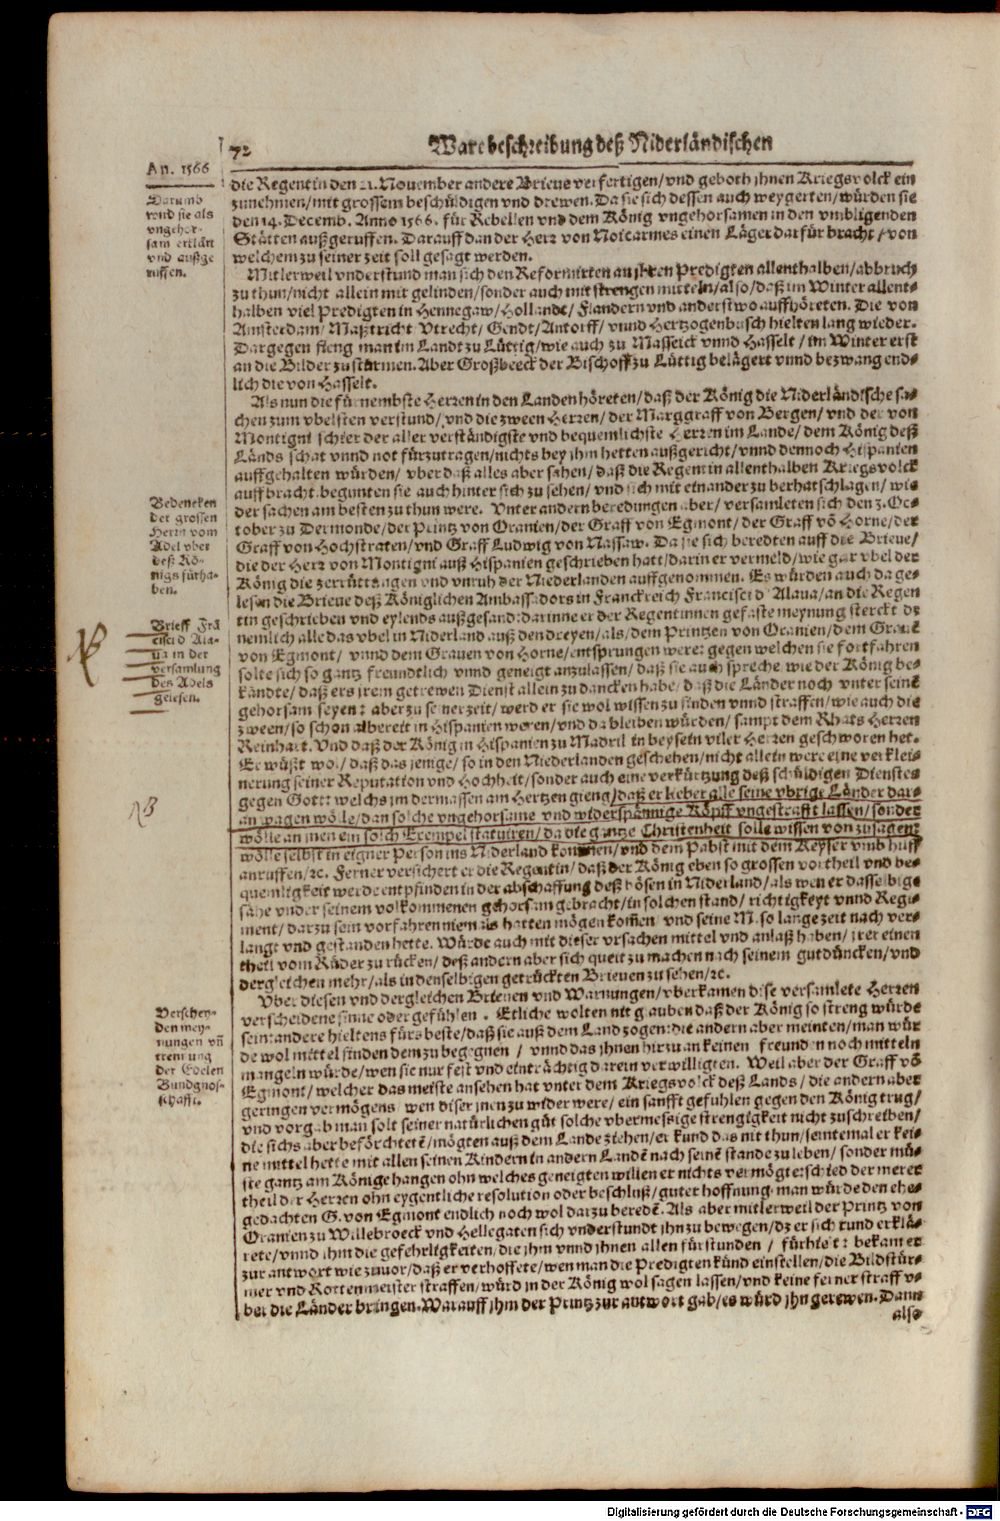 72
Ware beschreibung deß Niderländischen
An. 1566
die Regentin den 21. November andere Brieue verfertigen/vnd geboth jhnen Kriegsvolck ein
zunehmen/mit grossem beschüldigen vnd drewen. Da sie sich dessen auch weygerten/würden sie
den 14. Decemb. Anno 1566. für Rebellen vnd dem König vngehorsamen in den vmbligenden
Stätten außgeruffen. Darauff dan der Herr von Noicarmes einen Läger darfür bracht/von
welchem zu seiner zeit soll gesagt werden.
Darumb
wird sie als
vngehor-
sam erklärt
vnd außge
ruffen.
Mitlerweil vnderstund man sich den Reformirten an jhren Predigten allenthalben/abbruch
zu thun/nicht allein mit gelinden/sonder auch mit strengen mitteln/also/daß im Winter allent-
halben viel Predigten in Hennegaw/Hollandt/Flandern vnd anderstwo auffhöreten. Die von
Amsterdam/Mastricht/Vtrecht/Gendt/Antorff/vnnd Hertzogenbusch hielten lang wieder.
Dargegen fieng man im Landt zu Lüttig/wie auch zu Maseick vnnd Hasselt/im Winter erst
an die Bilder zu stürmen. Aber Großbeeck der Bischoff zu Lüttig belägert vnnd bezwang end-
lich die von Hasselt.
Als nun die fürnembste Herren in den Landen höreten/daß der König die Niderländische sa-
chen zum vbelsten verstund/vnd die zween Herren/der Marggraff von Bergen/vnd der von
Montigni schier der aller verständigste vnd bequemlichste Herren im Lande/dem König deß
Lands schat vnnd not fürzutragen/nichts bey jhm hetten außgericht/vnnd dennoch Hispanien
auffgehalten würden/vber daß alles aber sahen/daß die Regentin allenthalben Kriegsvolck
auffbracht/begunten sie auch hinter sich zu sehen/vnd sich mit einander zu berhatschlagen/wie
der sachen am besten zu thun were. Vnter andern beredungen aber/versamleten sich den 3. Oc-
tober zu Dermonde/der Printz von Oranien/der Graff von Egmont/der Graff vō Horne/der
Graff von Hochstraten/vnd Graff Ludwig von Nassaw. Da sie sich beredten auff die Brieue/
die der Herr von Montigni auß Hispanien geschrieben hatt/darin er vermeld/wie gar vbel der
König die zerrüttungen vnd vnruh der Niederlanden auffgenommen. Es würden auch da ge-
lesen die Brieue deß Königlichen Ambassadors in Franckreich Francisci d' Alaua/an die Regen
tin geschrieben vnd eylends außgesand: darinne er der Regentinnen gefaste meynung sterckt dz
nemlich alle das vbel in Niderland auß den dreyen/als/dem Printzen von Oranien/dem Graue
von Egmont/vnnd dem Grauen von Horne/entsprungen were: gegen welchen sie fortfahren
solte sich so gantz freundtlich vnnd geneigt anzulassen/daß sie auch spreche/wie der König be-
kändte/daß ers jrem getrewen Dienst allein zu dancken habe/daß die Länder noch vnter seinē
gehorsam seyen: aber zu seiner zeit/werd er sie wol wissen zu finden vnnd straffen/wie auch die
zween/so schon albereit in Hispanien weren/vnd da bleiben würden/sampt dem Rhats Herren
Reinhart. Vnd daß der König in Hispanien zu Madril in beysein viler Herren geschworen het.
Er wüßt wol/daß das jenige/so in den Niederlanden geschehen/nicht allein were eine verklei-
nerung seiner Reputation vnd Hochheit/sonder auch eine verkürtzung deß schüldigen Dienstes
gegen Gott: welchs jm dermassen am Hertzen gieng/daß er lieber alle seine vbrige Länder dar-
an wagen wölle/dan solche vngehorsame vnd widerspännige Köpff vngestrafft lassen/sonder
wölle an jnen ein solch Exempel statuiren/da die gantze Christenheit solle wissen von zusagen:
wölle selbst in eigner Person ins Niderland kommen/vnd dem Pabst mit dem Keyser vmb hülff
anruffen/ec. Ferner versichert er die Regentin/daß der König eben so grossen vortheil vnd be-
quemligkeit werde entpfinden in der abschaffung deß bösen in Niderland/als wen er dasselbige
sähe vnder seinem volkommenen gehorsam gebracht/in solchen stand/richtigkeyt vnnd Regi-
ment/darzu sein vorfahren niemals hatten mögen kom̄en vnd seine M. so lange zeit nach ver-
langt vnd gestanden hette. Würde auch mit dieser vrsachen mittel vnd anlaß haben/jrer einen
theil vom Rüder zu rücken/deß andern aber sich queit zu machen nach seinem gutdüncken/vnd
dergleichen mehr/als in denselbigen getrückten Brieuen zu sehen/ec.
Bedencken
der grossen
Herrn vom
Adel vber
deß Kö-
nigs fürha-
ben.
Brieff Frā
cisci d Ala-
ua in der
versamlung
des Adels
gelesen.
NB
NB
Vber diesen vnd dergleichen Brieuen vnd Warnungen/vberkamen dise versamlete Herren
verscheidene sinne oder gefühlen. Etliche wolten nit glauben daß der König so streng würde
sein: andere hieltens fürs beste/daß sie auß dem Land zogen: die andern aber meinten/man wür
de wol mittel finden dem zu begegnen/vnnd das jhnen hirzu an keinen freunden noch mitteln
mangeln würde/wen sie nur fest vnd einträchtig darein verwilligten. Weil aber der Graff vō
Egmont/welcher das meiste ansehen hat vnter dem Kriegsvolck deß Lands/die andern aber
geringen vermögens wen diser jnen zu wider were/ein sanfft gefühlen gegen den König trug/
vnd vorgab man solt seiner natürlichen güt solche vbermessige strengigkeit nicht zuschreiben/
die sichs aber beförchtetē/mögten auß dem Lande ziehen/er kund das nit thun/seintemal er kei-
ne mittel hette mit allen seinen Kindern in andern Landē nach seinē stande zu leben/sonder mü-
ste gantz am Könige hangen ohn welches geneigten willen er nichts vermögt: schied der merer
theil der Herren ohn eygentliche resolution oder beschluß/guter hoffnung/man würde den ehe-
gedachten G. von Egmont endlich noch wol darzu beredē. Als aber mitlerweil der Printz von
Oranien zu Willebroeck vnd Hellegaten sich vnderstundt jhn zu bewegen/dz er sich rund erklä-
rete/vnnd jhm die gefehrligkeiten/die jhm vnnd jhnen allen fürstunden/fürhielt: bekam er
zur antwort wie zuvor/daß er verhoffete/wen man die Predigten künd einstellen/die Bildstür-
mer vnd Rottenmeister straffen/würd jn der König wol sagen lassen/vnd keine ferner straff v-
ber die Länder bringen. Warauff jhm der Printz zur antwort gab/es würd jhn gerewen. Dann
also
Verschey-
den mey-
nungen vn̄
trennung
der Edelen
Bundgnos-
schafft.
Digitalisierung gefördert durch die Deutsche Forschungsgemeinschaft - DFG